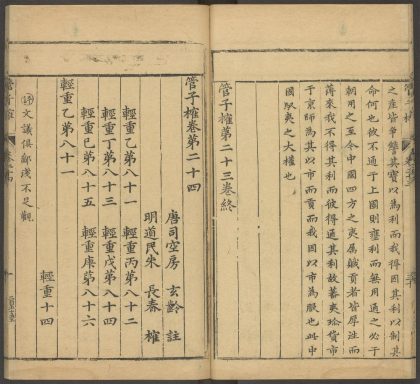 之産皆爭繦其寶以爲利而我得因其利以制其
命何也彼不通于上國則壅利而無用通之必于
朝用之至令中國四方之夷屬鹹貢者皆厚往而
薄來我不得其利而彼得通其利故蕃夷給貨市
于京師爲其以市而貢而我因以市爲服也此中
國馭夷之大權也
管子榷第二十三卷終
管子榷卷第二十四
唐司空房 玄齡 註
明道民朱 長春 榷
輕重乙第八十一 輕重丙第八十二
輕重丁第八十三 輕重戊第八十四
輕重己第八十五 輕重庚第八十六
輕重乙第八十一
輕重十四
文議俱鄙淺不足觀